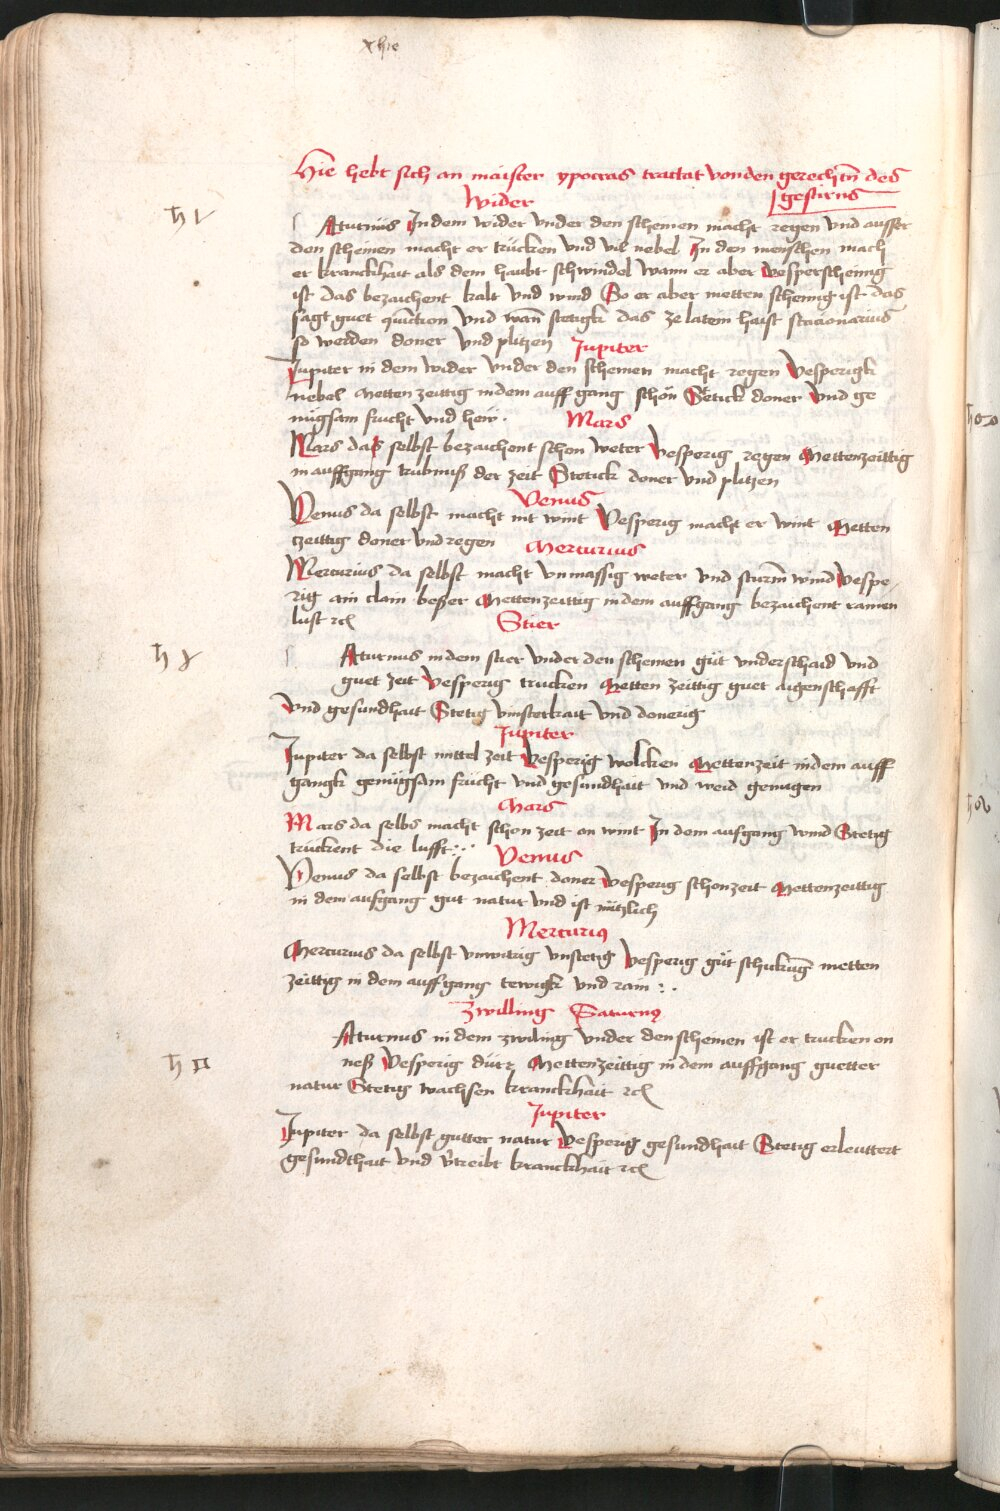 Hie hebt sich an maister ypocras tractat von den gerechtn des
gestirns
Wider
♄ ♈
Aturnus In dem wider vnder den scheinen macht regen vnd ausser
den scheinen macht er trücken vnd vil nebel In den menschen mach
er kranckhait als dem haubt schwindel wann er aber vesperscheinig
ist das bezaichent kalt vnd wind So er aber metten scheinig ist das
sagt guet vnd wan̄ stetigk das ze latein haist stacionarius
so werden doner vnd plitzen
Jupiter
Jupiter in dem wider vnder den scheinen macht regen Vesperigk
nebel Metten zeittig in dem auff gang schön Stetick doner vnd ge
nügsam frucht vnd heẅ.
Mars
Mars das selbst bezaichent schon weter Vesperig regen Mettenzeittig
in auffgang trubnuß der zeit Stetick doner vnd plitzen
Venus
Venus da selbst macht nit wint Vesperig macht er wint Metten
czeittig doner vnd regen
Mercurius
Mercurius da selbst macht vnmassig weter vnd sturm̄ wind Vespe
rig ain clain beßer Mettenzeittig in dem auffgang bezaichent rainen
lust ꝛc
Stier
♄ ♉
Aturnus in dem stier vnder den scheinen güt vnderschaid vnd
guet zeit Vesperig trucken Metten zeittig guet aigenschafft
Vnd gesundhait Stetig vinsterkait vnd donerig
Jupiter
Jupiter da selbst mittel zeit Vesperig wolcken Mettenzeit in dem auff
gangk genügsam frücht vnd gesundhait vnd weid genugen
Mars
Mars da selbs macht schon zeit on wint In dem aufgang wind Stetig
truckent die lufft
Venus
Venus da selbst bezaichent doner Vesperig schonzeit Mettenzeittig
in dem aufgang gut natur vnd ist nützlich
Mercurius
Mercurius da selbst vnwirig vnstetig Vesperig güt schickug̅ metten
zeittig in dem auffgang vnd rain
Zwilling Saturnus
♄ ♊
Aturnus in dem zwiling vnder den scheinen ist er trucken on
neß Vesperig dürr Mettenzeittig in dem auffgang guetter
natur Stetig wachsen kranckhait ꝛc
Jupiter
Jupiter da selbst gutter natur Vesperig gesundhait Stetig erleuttert
gesundthait vnd v̄treibt kranckhait ꝛc